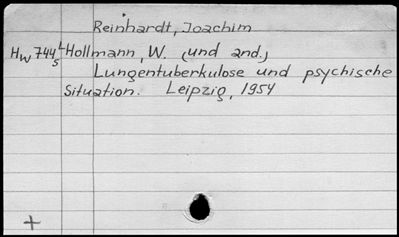 Reinhardt, Joachim
Hw 744 L/5 Hollmann, W. (und and.)
Lungentuberkulose und psychische
Situation. Leipzig, 1954
+